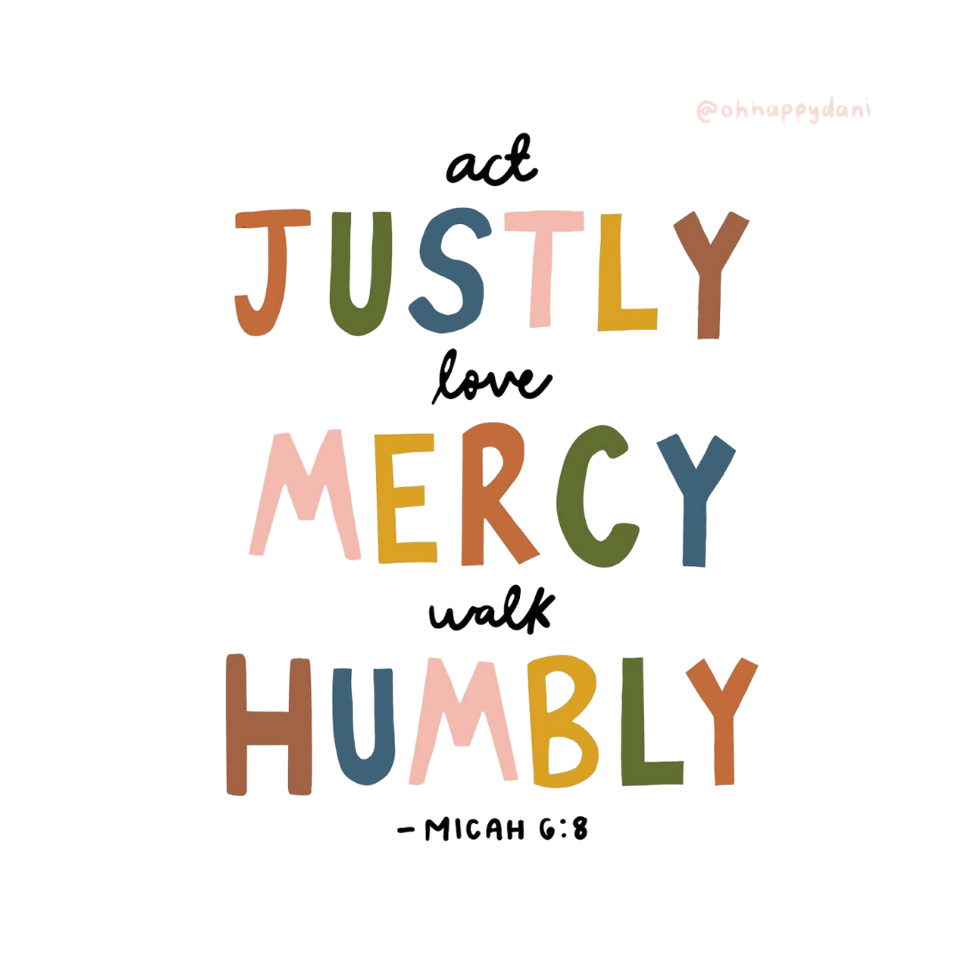 @ohhappydani
act
JUSTLY
love
MERCY
walk
HUMBLY
- MICAH 6:8